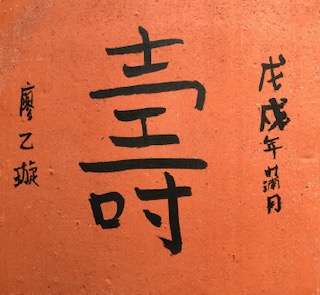 戊戌年蒲月
壽
廖乙璇